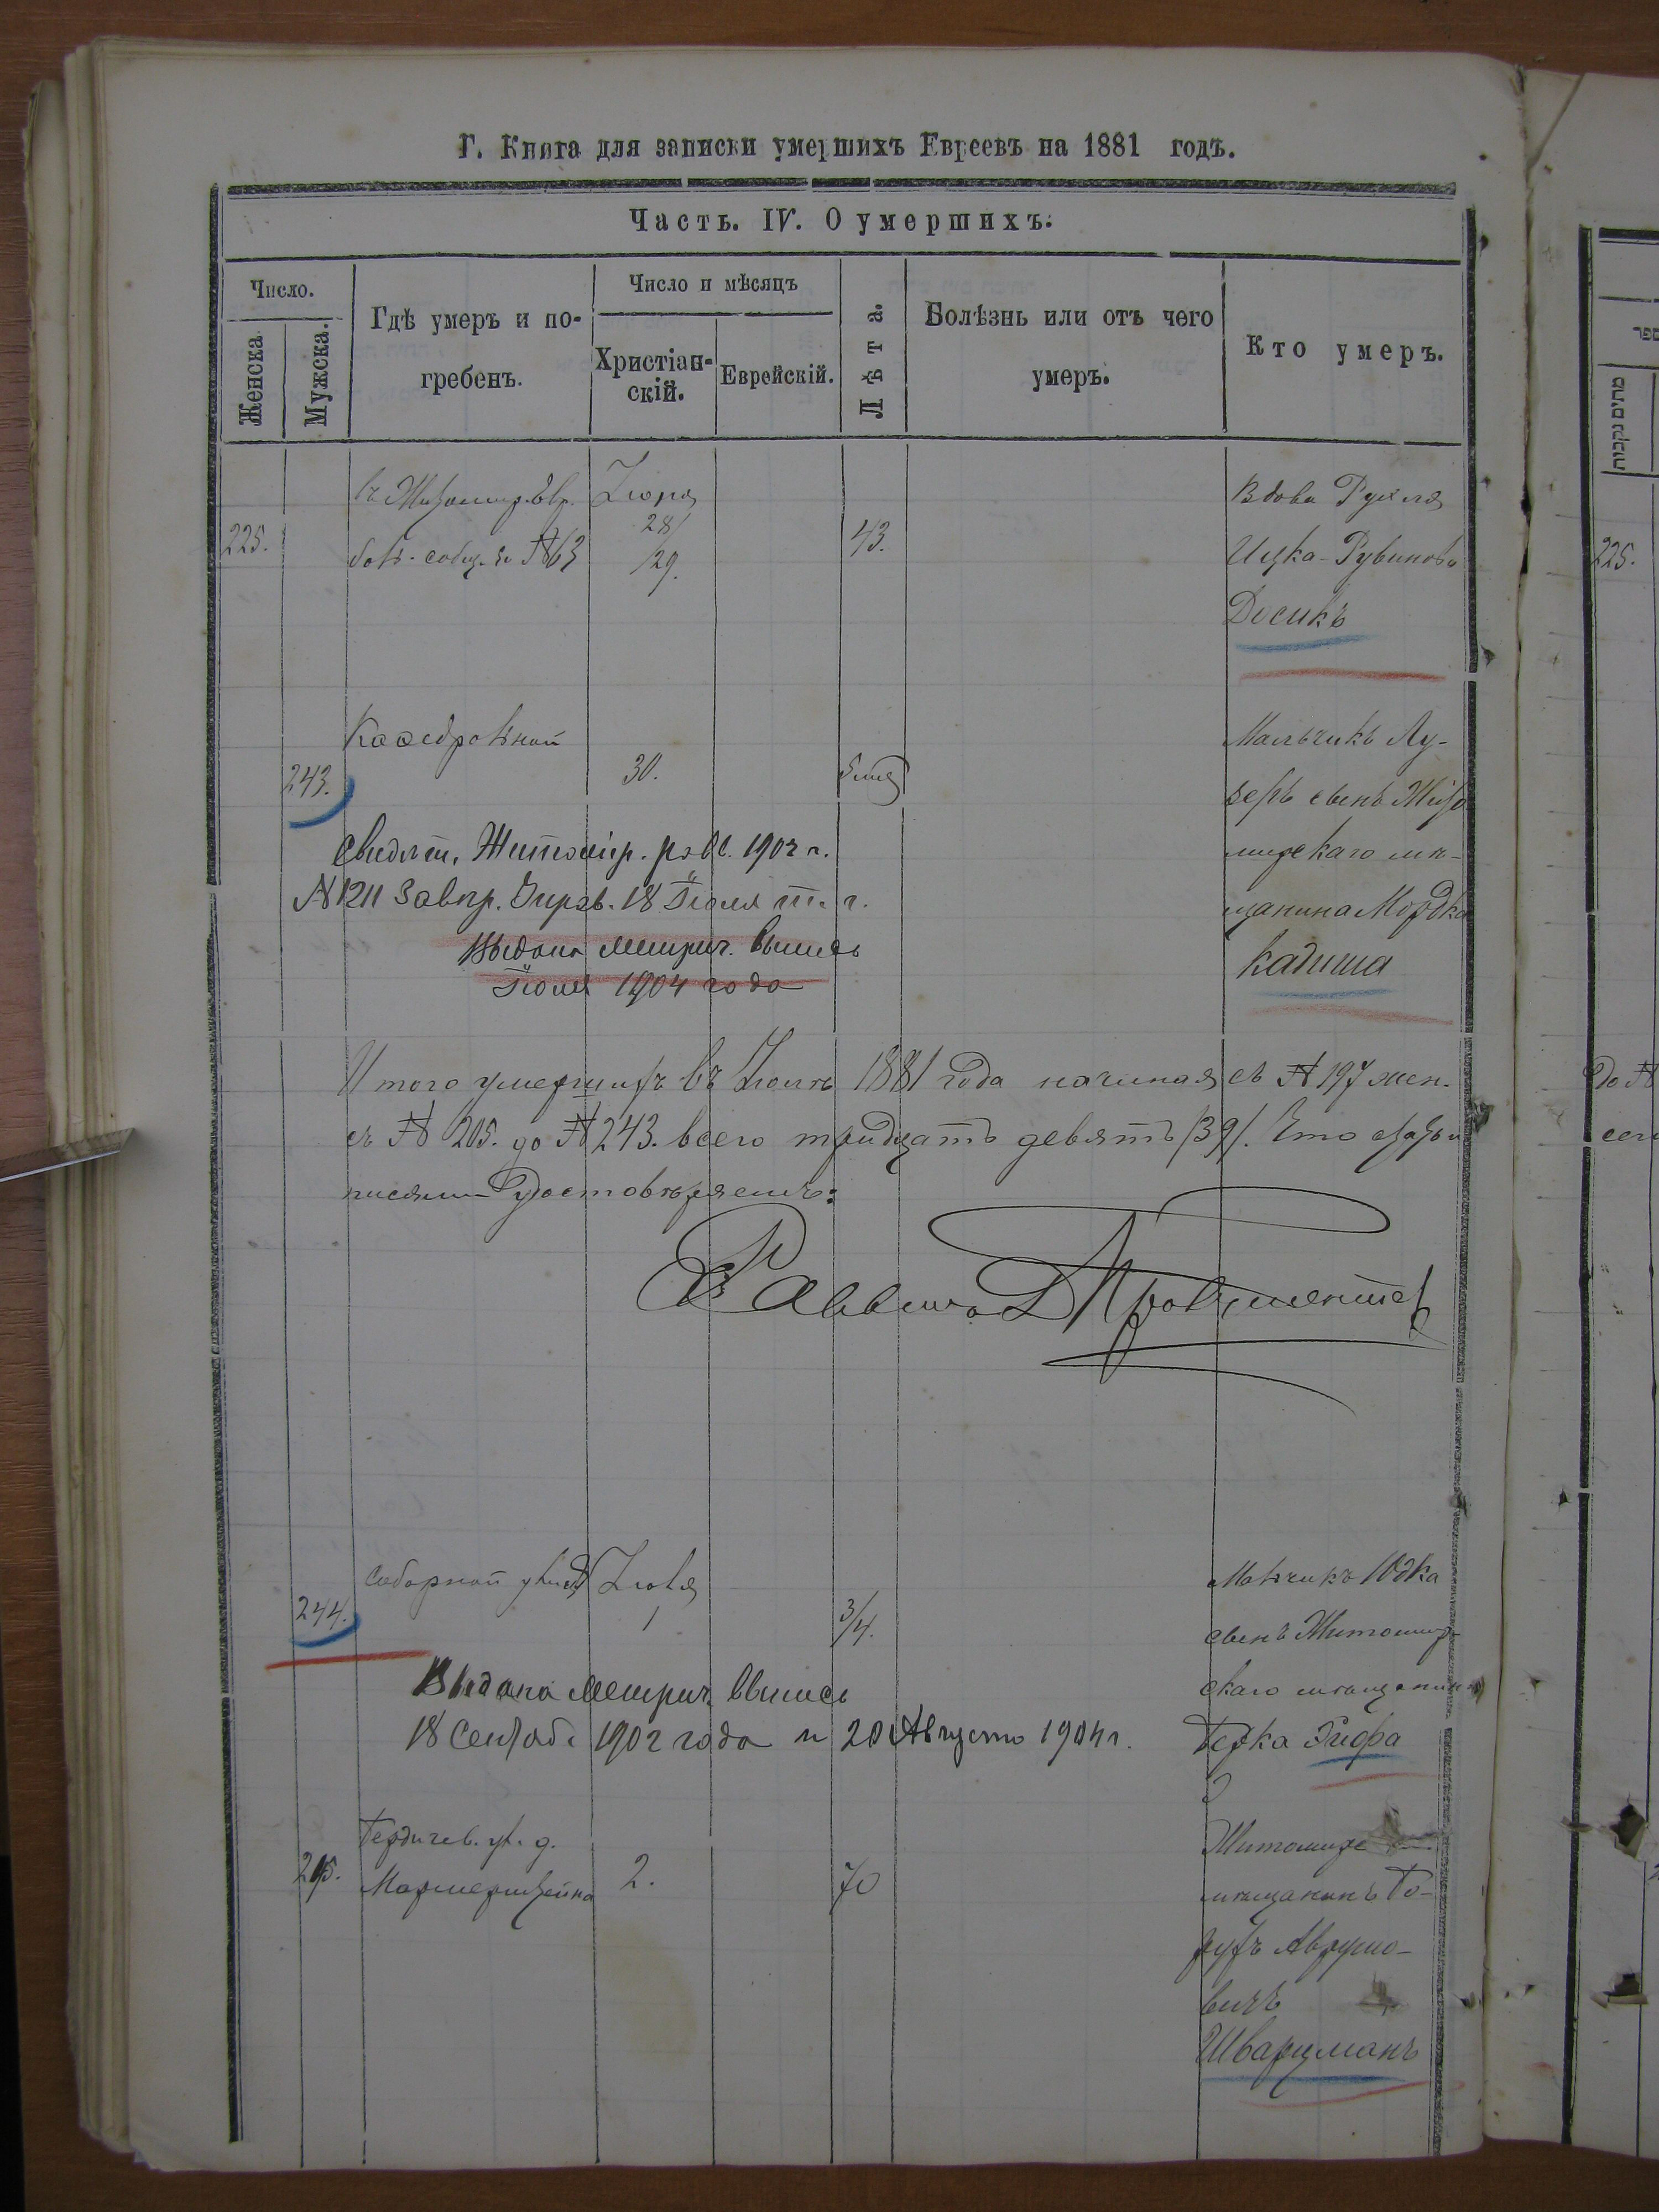 Г. Книга для записки умершихъ Евреевъ на 1881 годъ.
Часть. IV. О умершихъ.
Число.
Женска
Мужска.
Гдѣ умеръ и по-
гребенъ.
Число и мѣсяцъ
Христіан-
скій.
Еврейскій.
Лѣта.
Болѣзнь или отъ чего
умеръ.
Кто умеръ.
225.
въ Житомир. Евр.
№ 63
28/
29.
43.
Вдова Рухля
Ицка-Рувинова
Досикъ
243.
30.
Мальчикъ Лу-
зеръ сынъ Жито
мирскаго мѣ-
щанина Мордка
Кадиша
Свидѣт. Житомір. 1902 г.
№ 1211 18 Іюля т. г.
Выдана метрич. выпись
Іюля 1904 года
Итого умершихъ въ Іюнѣ 1881 года начиная съ № 197 жен.
съ № 205. до № 243. всего тридцать девять /39/. Что
удостовѣряемъ:
Раввинъ
244.
Соборной улицѣ
Іюля
1
3/4.
Мальчикъ Юдка
сынъ Житомир-
скаго мѣщанина
Берка
Выдана метрич. выпись
18 Сентяб. 1902 года и 20 Августа 1904 г.
245.
Бердичев. ул. д.
2.
70
Житомирс
мѣщанинъ Бо-
рухъ Аврумо-
вичъ
Шварцманъ
225.
מתים נקבות